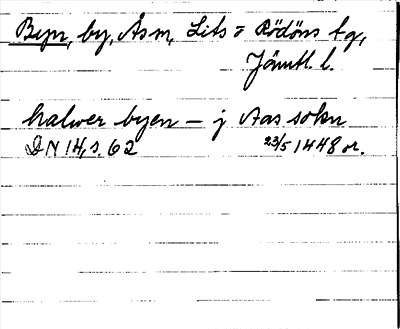 Byn, by, Ås sn, Lits o Rödöns tg,
Jämtl. l.
halwer byen – j Aas sokn
DN 14, s. 62 23/5 1448 or.